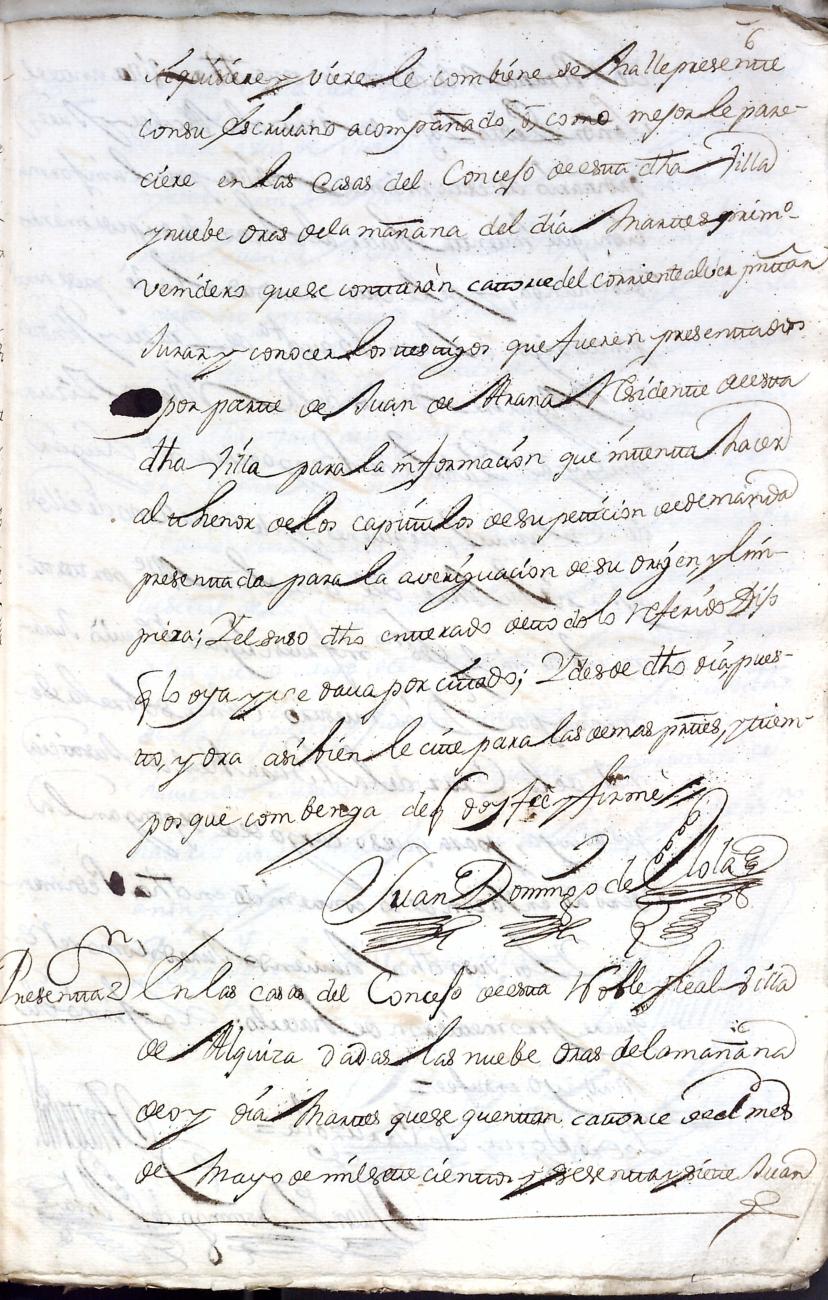 6
si quisiere y viere le combiene se halle presente
con su escrivano acompañado, o como mejor le pare-
ciere en las casas del Concejo de esta dha Villa
y nuebe oras de la mañana del dia Martes primo
venidero que se contaràn catorce del corriente a ver
Jurar y conocer los testigos que fueren presentados
por parte de Juan de Arana Residente de esta
dha Villa para la informacion que intenta hacer
al thenor de los capitulos de su peticion de demanda
presentada para la averiguacion de su origen y lim-
pieza; Y el suso dho enterado de todo lo referido Dijo
q lo oya y se dava por citado; Y desde dho dia, pues-
to, y ora asi bien le cite para las demas partes, y tiem-
po que combenga de q doy fee y firmè
Juan Domingo de Olola
Presentaz.n
En las casas del Concejo de esta Noble y Leal Villa
de Alquiza dadas las nuebe oras de la mañana
de oy dia Martes que se quentan catorce del mes
de Mayo de mil sete cientos y sesenta y siete Juan